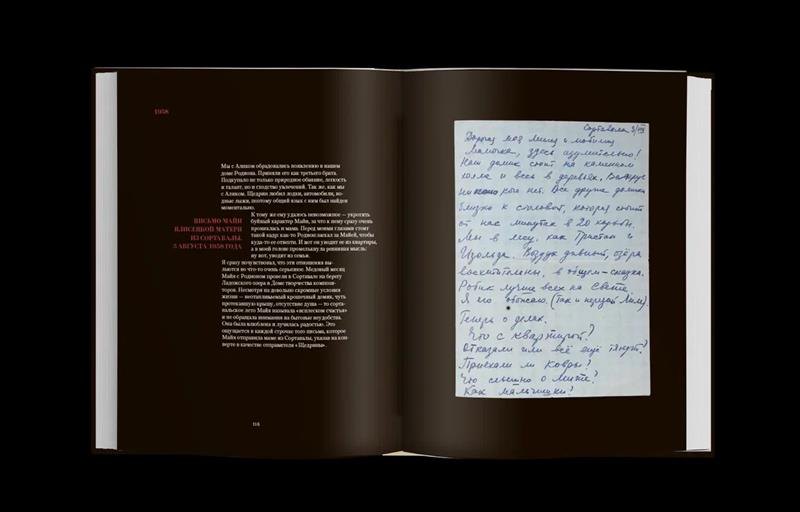 1958
Мы с Аликом обрадовались появлению в нашем
доме Родиона. Приняли его как третьего брата.
Подкупало не только природное обаяние, легкость
и талант, но и сходство увлечений. Так же, как мы
с Аликом, Щедрин любил лодки, автомобили, во-
дные лыжи, поэтому общий язык с ним был найден
моментально.
К тому же ему удалось невозможное — укротить
буйный характер Майи, за что к нему сразу очень
прониклась и мама. Перед моими глазами стоит
такой кадр: как-то Родион заехал за Майей, чтобы
куда-то ее отвезти. И вот он уводит ее из квартиры,
а в моей голове промелькнула ревнивая мысль:
ну вот, уводит из семьи.
Я сразу почувствовал, что эти отношения вы-
льются во что-то очень серьезное. Медовый месяц
Майя с Родионом провели в Сортавале на берегу
Ладожского озера в Доме творчества композито-
ров. Несмотря на довольно скромные условия
жизни — неотапливаемый крошечный домик, чуть
протекавшую крышу, отсутствие душа — то сорта-
вальское лето Майя называла «всплеском счастья»
и не обращала внимания на бытовые неудобства.
Она была влюблена и лучилась радостью. Это
ощущается в каждой строчке того письма, которое
Майя отправила маме из Сортавалы, указав на кон-
верте в качестве отправителя «Щедрины».
ПИСЬМО МАЙИ
ПЛИСЕЦКОЙ МАТЕРИ
ИЗ СОРТАВАЛЫ.
3 АВГУСТА 1958 ГОДА
116
Сортавала 3/VIII
Дорогая моя милая и любимая
Мамочка, здесь изумительно!
Наш домик стоит на каменном
холме и весь в деревьях. Вокруг
никого нет. Все другие домики
близко к столовой, которая стоит
от нас минутах в 20 ходьбы.
Мы в лесу, как Тристан и
Изольда. Воздух дивный, озёра
восхитительны, в общем - сказка.
Робик лучше всех на свете.
Я его обожаю. (Так и передай Лиле).
Теперь о делах.
Что с квартирой?
Отказали или всё ещё тянут?
Приехали ли ковры?
Что слышно о Мите?
Как мальчишки?